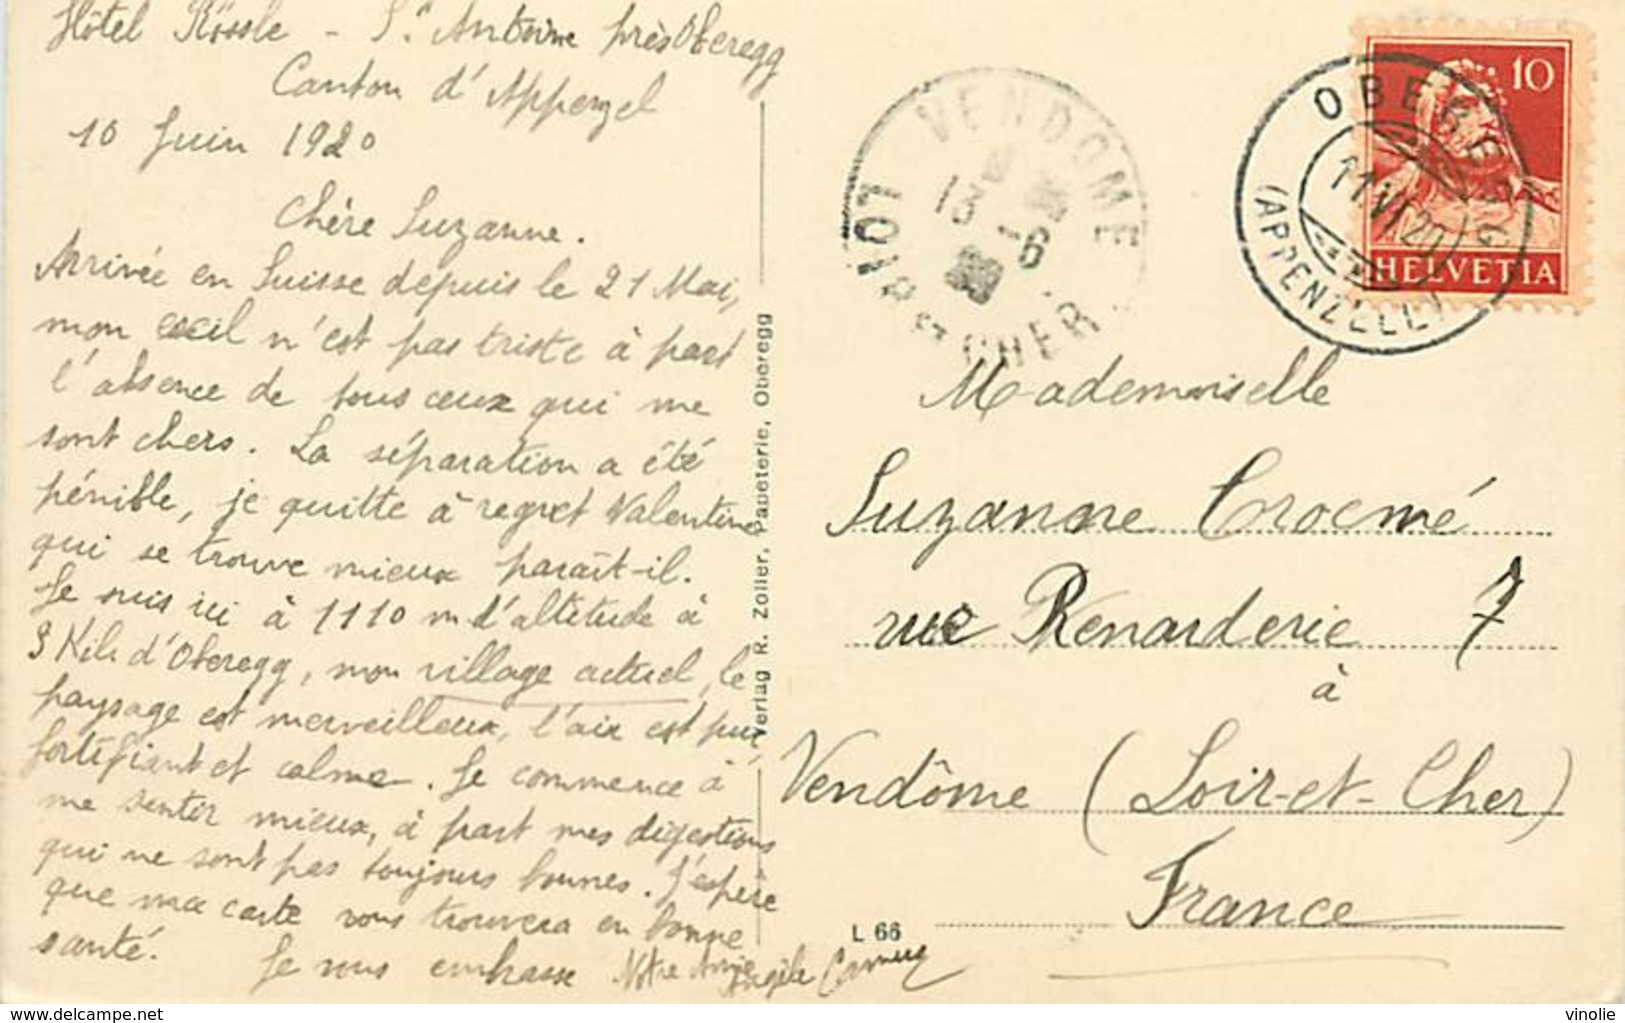 Hôtel Rössle - St Antoine près Oberegg
Canton d'Appenzel
10 Juin 1920
Chère Suzanne.
Arrivée en Suisse depuis le 21 Mai,
mon exil n'est pas triste à part
l'absence de tous ceux qui me
sont chers. La séparation a été
pénible, je quitte à regret Valentine
qui se trouve mieux paraît-il.
Je suis ici à 1110 m d'altitude à
3 Kils d'Oberegg, mon village actuel, le
paysage est merveilleux, l'air est pur,
fortifiant et calme. Je commence à
me sentir mieux, à part mes digestions
qui ne sont pas toujours bonnes. J'espère
que ma carte vous trouvera en bonne
santé. Je vous embrasse Votre Amie
Verlag R. Zoller, Papeterie, Oberegg
VENDOME
13 -6
LOIR ET CHER
OBEREGG
11.VI.20
(APPENZELL)
10
HELVETIA
Mademoiselle
Suzanne Crocmé
rue Renarderie 7
à
Vendôme (Loir-et-Cher)
France
L 66
www.delcampe.net
vinolie